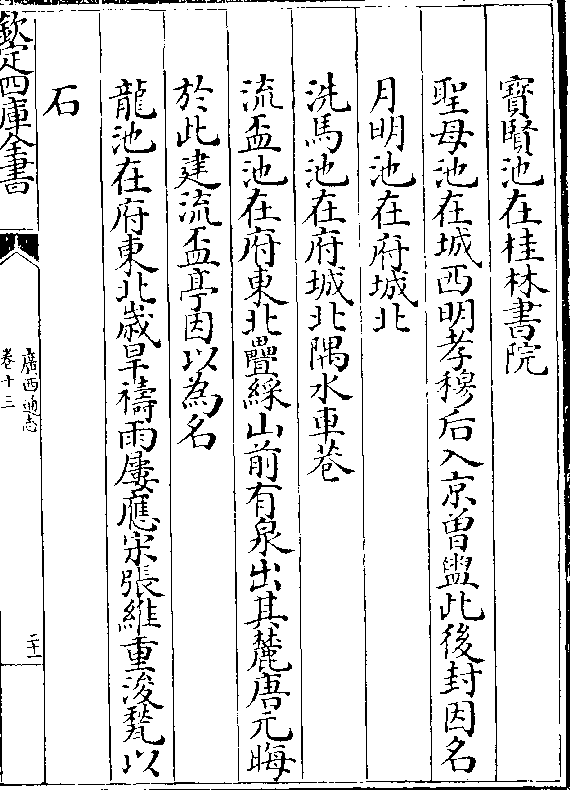 寶賢池在桂林書院
聖母池在城西明孝穆后入京曽盥此後封因名
月明池在府城北
洗馬池在府城北隅水車巷
流盃池在府東北疊綵山前有泉出其麓唐元晦
於此建流盃亭因以為名
龍池在府東北歳旱禱雨屢應宋張維重浚甃以
石
欽定四庫全書
廣西通志
卷十三
二十一